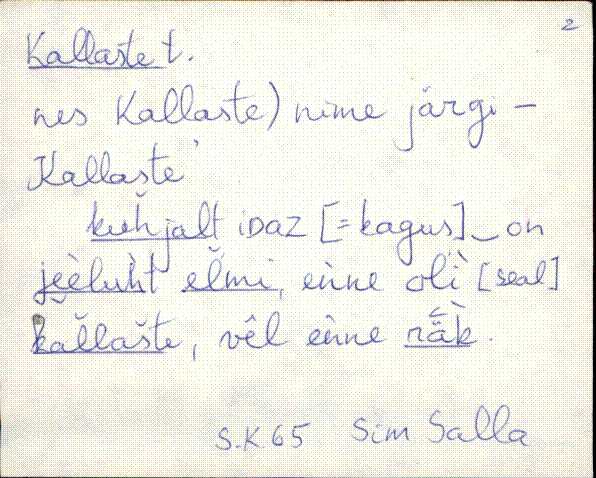 2
Kallaste t.
nes Kallaste) nime järgi –
Kallaste'
kuȟjalt iDAZ [=kagus] on
jèèluh̀t el̆mi, eǹne olì [seal]
kal̆lašte, vêl eǹne rǟ̀k.
S.K 65 Sim Salla